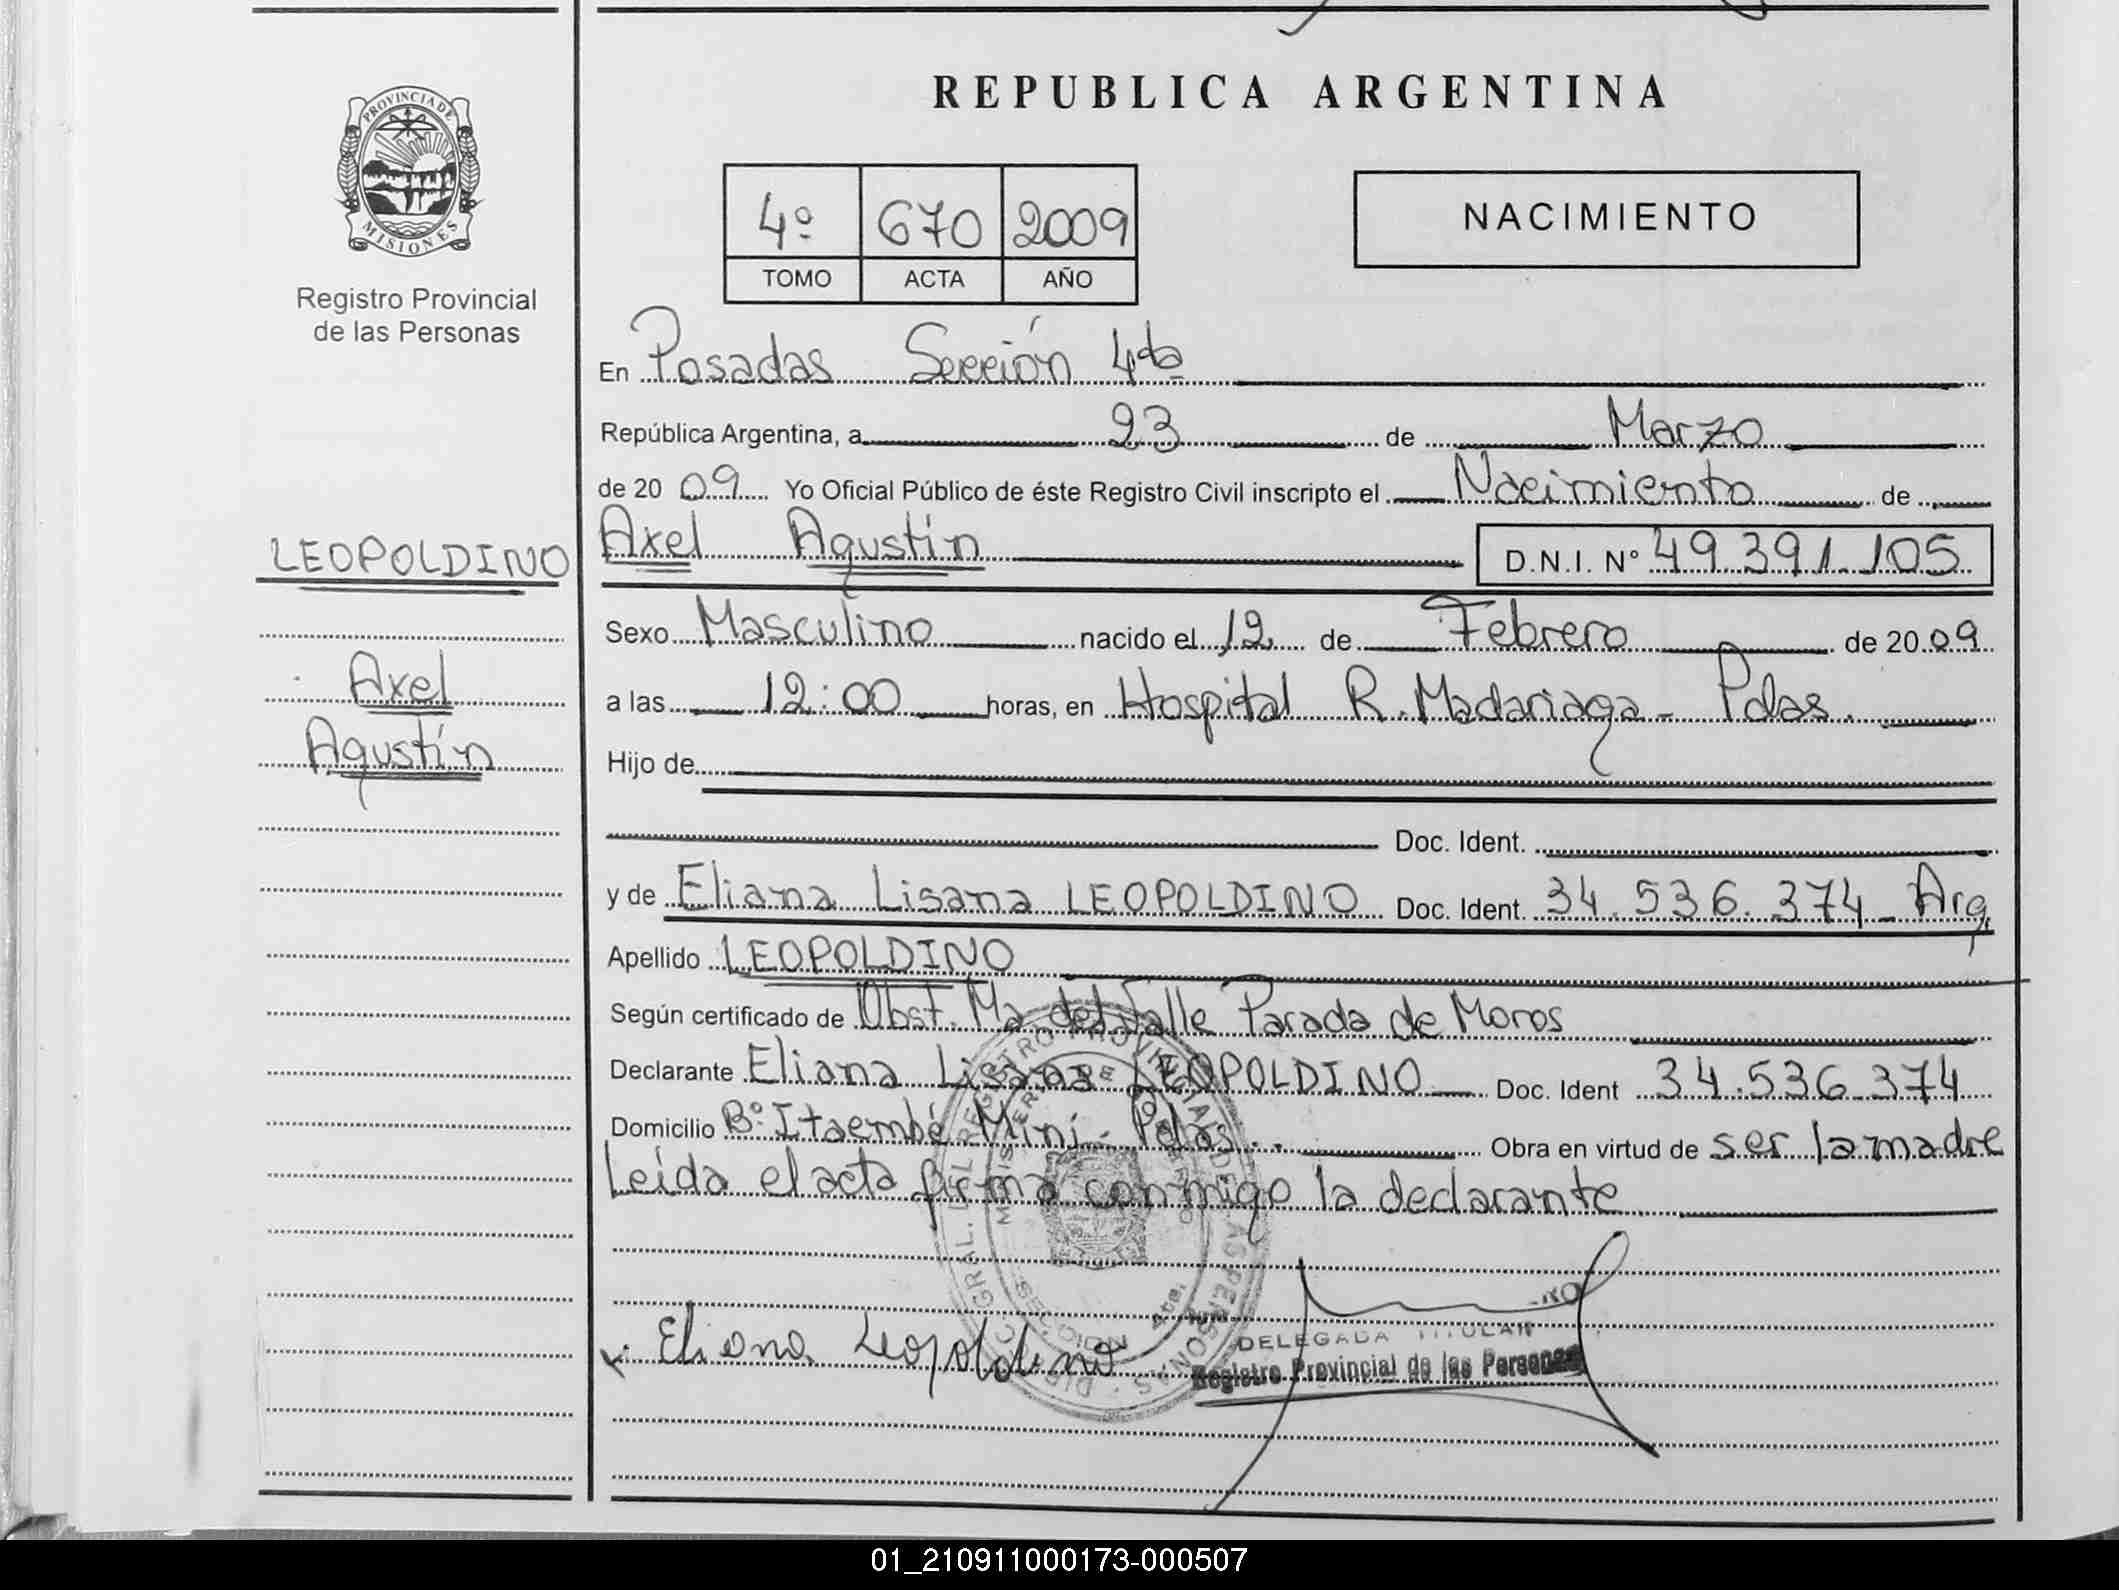 REPUBLICA ARGENTINA
PROVINCIA DE
MISIONES
Registro Provincial
de las Personas
4º 670 2009
TOMO ACTA AÑO
NACIMIENTO
En Posadas Sección 4ta
República Argentina, a 23 de Marzo
de 20 09 Yo Oficial Público de éste Registro Civil inscripto el Nacimiento de
LEOPOLDINO
Axel
Agustín
Axel Agustín D.N.I. Nº 49.391.105
Sexo Masculino nacido el 12 de Febrero de 20 09
a las 12:00 horas, en Hospital R. Madariaga - Pdas.
Hijo de
Doc. Ident.
y de Eliana Lisana LEOPOLDINO Doc. Ident. 34.536.374 - Arg.
Apellido LEOPOLDINO
Según certificado de Obst. Ma. del Valle Parada de Moros
Declarante Eliana Lisana LEOPOLDINO Doc. Ident 34.536.374
Domicilio Bº Itaembé Miní - Pdas. Obra en virtud de ser la madre
Leída el acta firma conmigo la declarante
Eliana Leopoldino
DELEGADA TITULAR
Registro Provincial de las Personas
01_210911000173-000507